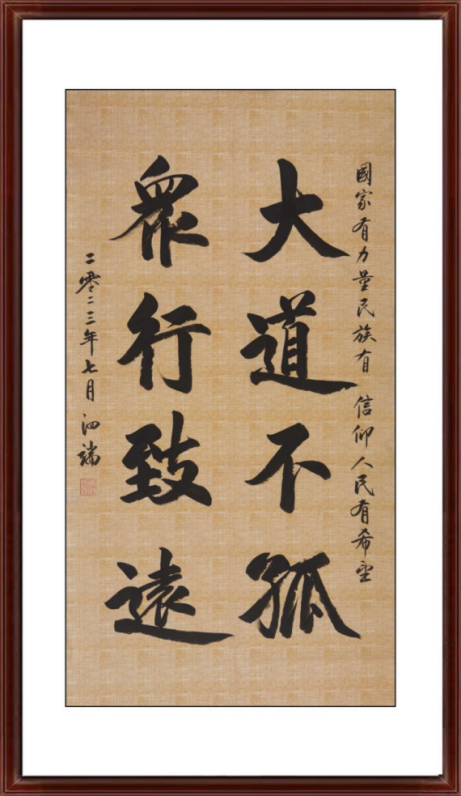 國家有力量民族有信仰人民有希望
大道不孤
衆行致遠
二零二三年七月泗端